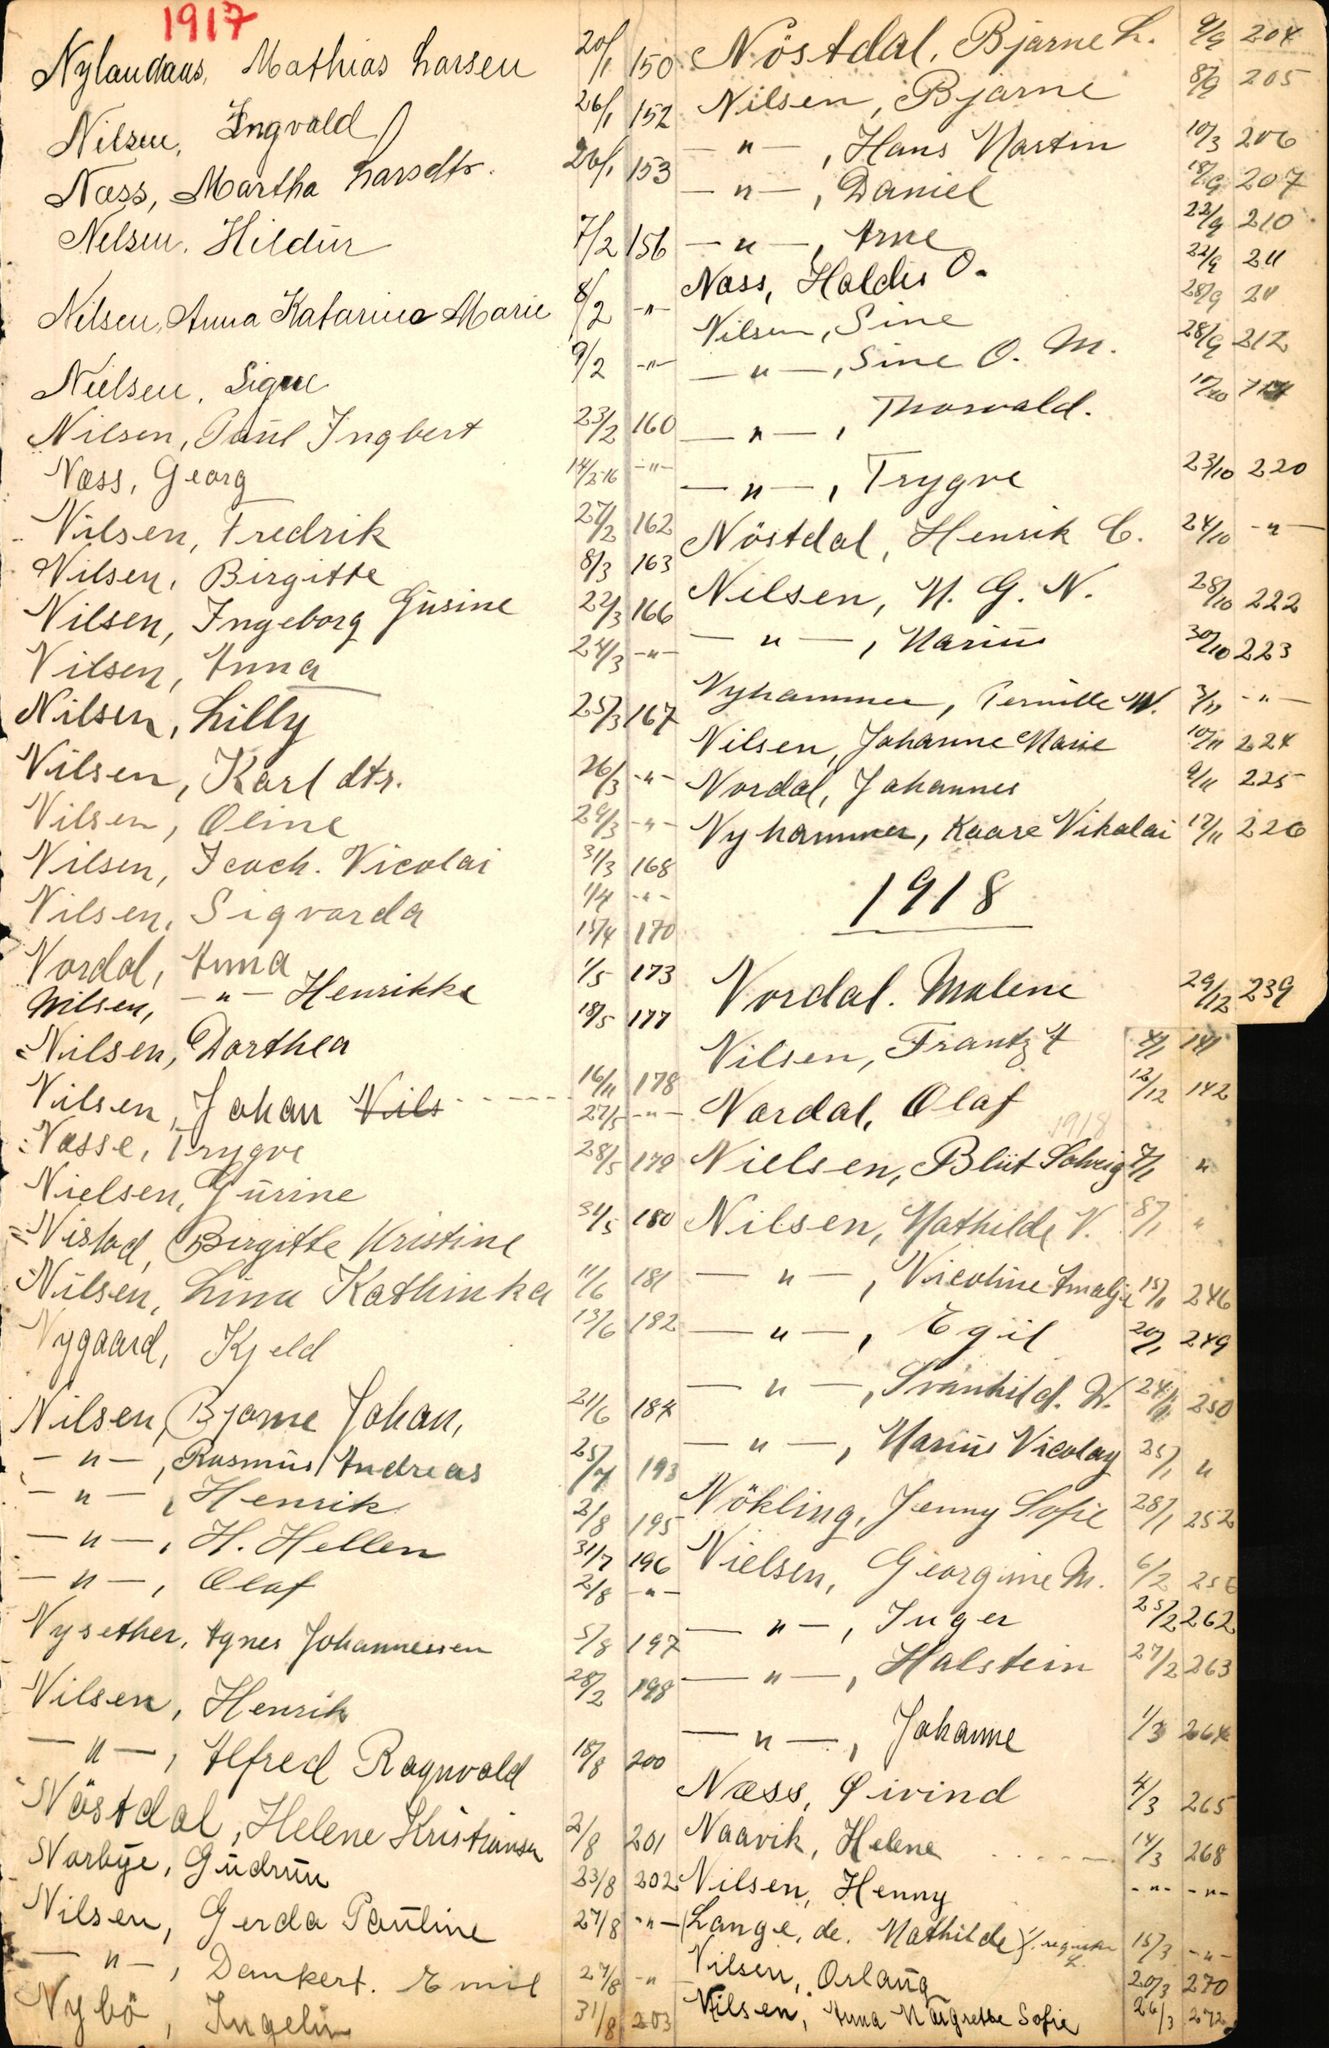 1917
Nylandaas, Mathias Larsen 20/1 150
Nilsen, Ingvald 26/1 152
Næss, Martha Larsdtr. 26/1 153
Nilsen, Hildur 7/2 156
Nilsen, Anna Katarina Marie 8/2 -"-
Nielsen, Signe 9/2 -"-
Nilsen, Paul Ingbert 23/2 160
Næss, Georg 14/2 16 -"-
Nilsen, Fredrik 27/2 162
Nilsen, Birgitte 8/3 163
Nilsen, Ingeborg Gusine 22/3 166
Nilsen, Anna 24/3 -"-
Nilsen, Lilly 25/3 167
Nilsen, Karl dtr. 26/3 -"-
Nilsen, Oline 29/3 -"-
Nilsen, Joach. Nicolai 31/3 168
Nilsen, Sigvarda 1/4 -"-
Nordal, Anna 15/4 170
Nilsen, -"- Henrikke 1/5 173
Nilsen, Dorthea 18/5 177
Nilsen, Johan Nils 16/11 178
Næsse, Trygve 27/5 -"-
Nielsen, Gurine 28/5 179
Nistad, Birgitte Kristine 31/5 180
Nilsen, Lina Kathinka 11/6 181
Nygaard, Kjeld 13/6 182
Nilsen, Bjarne Johan, 21/6 184
-"-, Rasmus Andreas 25/7 193
-"-, Henrik 2/8 195
-"-, H. Hellen 31/7 196
-"-, Olaf 2/8 -"-
Nysether, Agnes Johannessen 5/8 197
Nilsen, Henrik 28/2 198
-"-, Alfred Ragnvald 18/8 200
Nöstdal, Helene Kristiansen 2/8 201
Norbye, Gudrun 23/8 202
Nilsen, Gerda Pauline 27/8 -"-
-"-, Dankert. Emil 27/8 -"-
Nybö, Ingelin 31/8 203
Nöstdal, Bjarne L. 9/9 204
Nilsen, Bjarne 8/9 205
-"-, Hans Martin 10/3 206
-"-, Daniel 18/9 207
-"-, Arne 22/9 210
Næss, Haldis O. 22/9 211
Nilsen, Sine 28/9 211
-"-, Sine O. M. 28/9 212
-"-, Thorvald.
-"-, Trygve 23/10 220
Nöstdal, Henrik C. 24/10 -"-
Nilsen, N. G. N. 28/10 222
-"-, Marius 30/10 223
Nyhammer, Pernille W. 3/11 -"-
Nilsen, Johanne Marie 10/11 224
Nordal, Johannes 9/11 225
Nyhammer, Kaare Nikolai 17/11 226
1918
Nordal. Malene 29/12 239
Nilsen, Frantz 4/1 141
Nordal, Olaf 12/12 142
1918
Nielsen, Blut Solveig 7/1 "
Nilsen, Mathilde V. 8/1 "
-"-, Nicoline Amalje 15/1 246
-"-, Egil 20/1 249
-"-, Svanhild. W. 24/1 250
-"-, Marius Nicolay 25/1 "
Nökling, Jenny Sofie 28/1 252
Nielsen, Georgine M. 6/2 256
-"-, Inger 25/2 262
-"-, Halstein 27/2 263
-"-, Johanne 1/3 264
Næss, Øivind 4/3 265
Naavik, Helene 14/3 268
Nilsen, Henny -"- -"-
(Lange, de. Mathilde) 15/3 -"-
Nilsen, Orlaug 20/3 270
Nilsen, Anna Margrethe Sofie 26/3 272